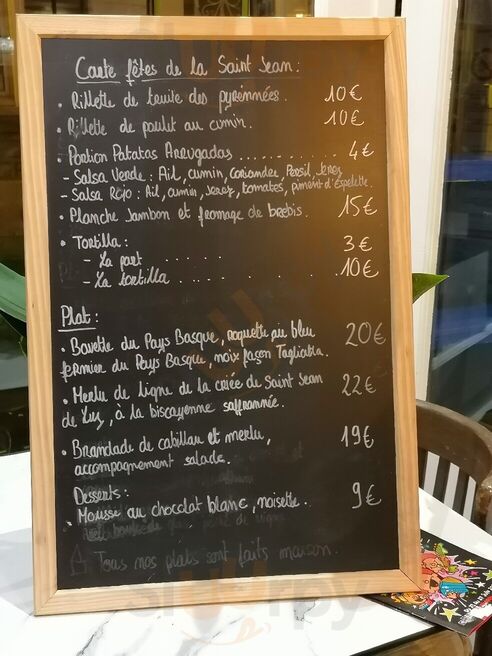 Carte fêtes de la Saint Jean :
• Rillette de truite des pyrénnées. 10€
• Rillette de poulet au cumin. 10€
• Portion Patatas Arrugadas .............. 4€
- Salsa Verde : Ail, cumin, coriandre, Persil, Jerez
- Salsa Rojo : Ail, cumin, Jerez, tomates, piment d'Espelette.
• Planche Jambon et fromage de brebis. 15€
• Tortilla : 3€
- La part . . . . . .
- La tortilla . . . . . . . . 10€
Plat :
• Bavette du Pays Basque, roquette au bleu 20€
fermier du Pays Basque, noix façon Tagliatta.
• Merlu de ligne de la criée de Saint Jean 22€
de Luz, à la biscayenne saffrannée.
• Brandade de cabillau et merlu, 19€
accompagnement salade.
Desserts :
• Mousse au chocolat blanc, noisette. 9€
Tous nos plats sont faits maison.